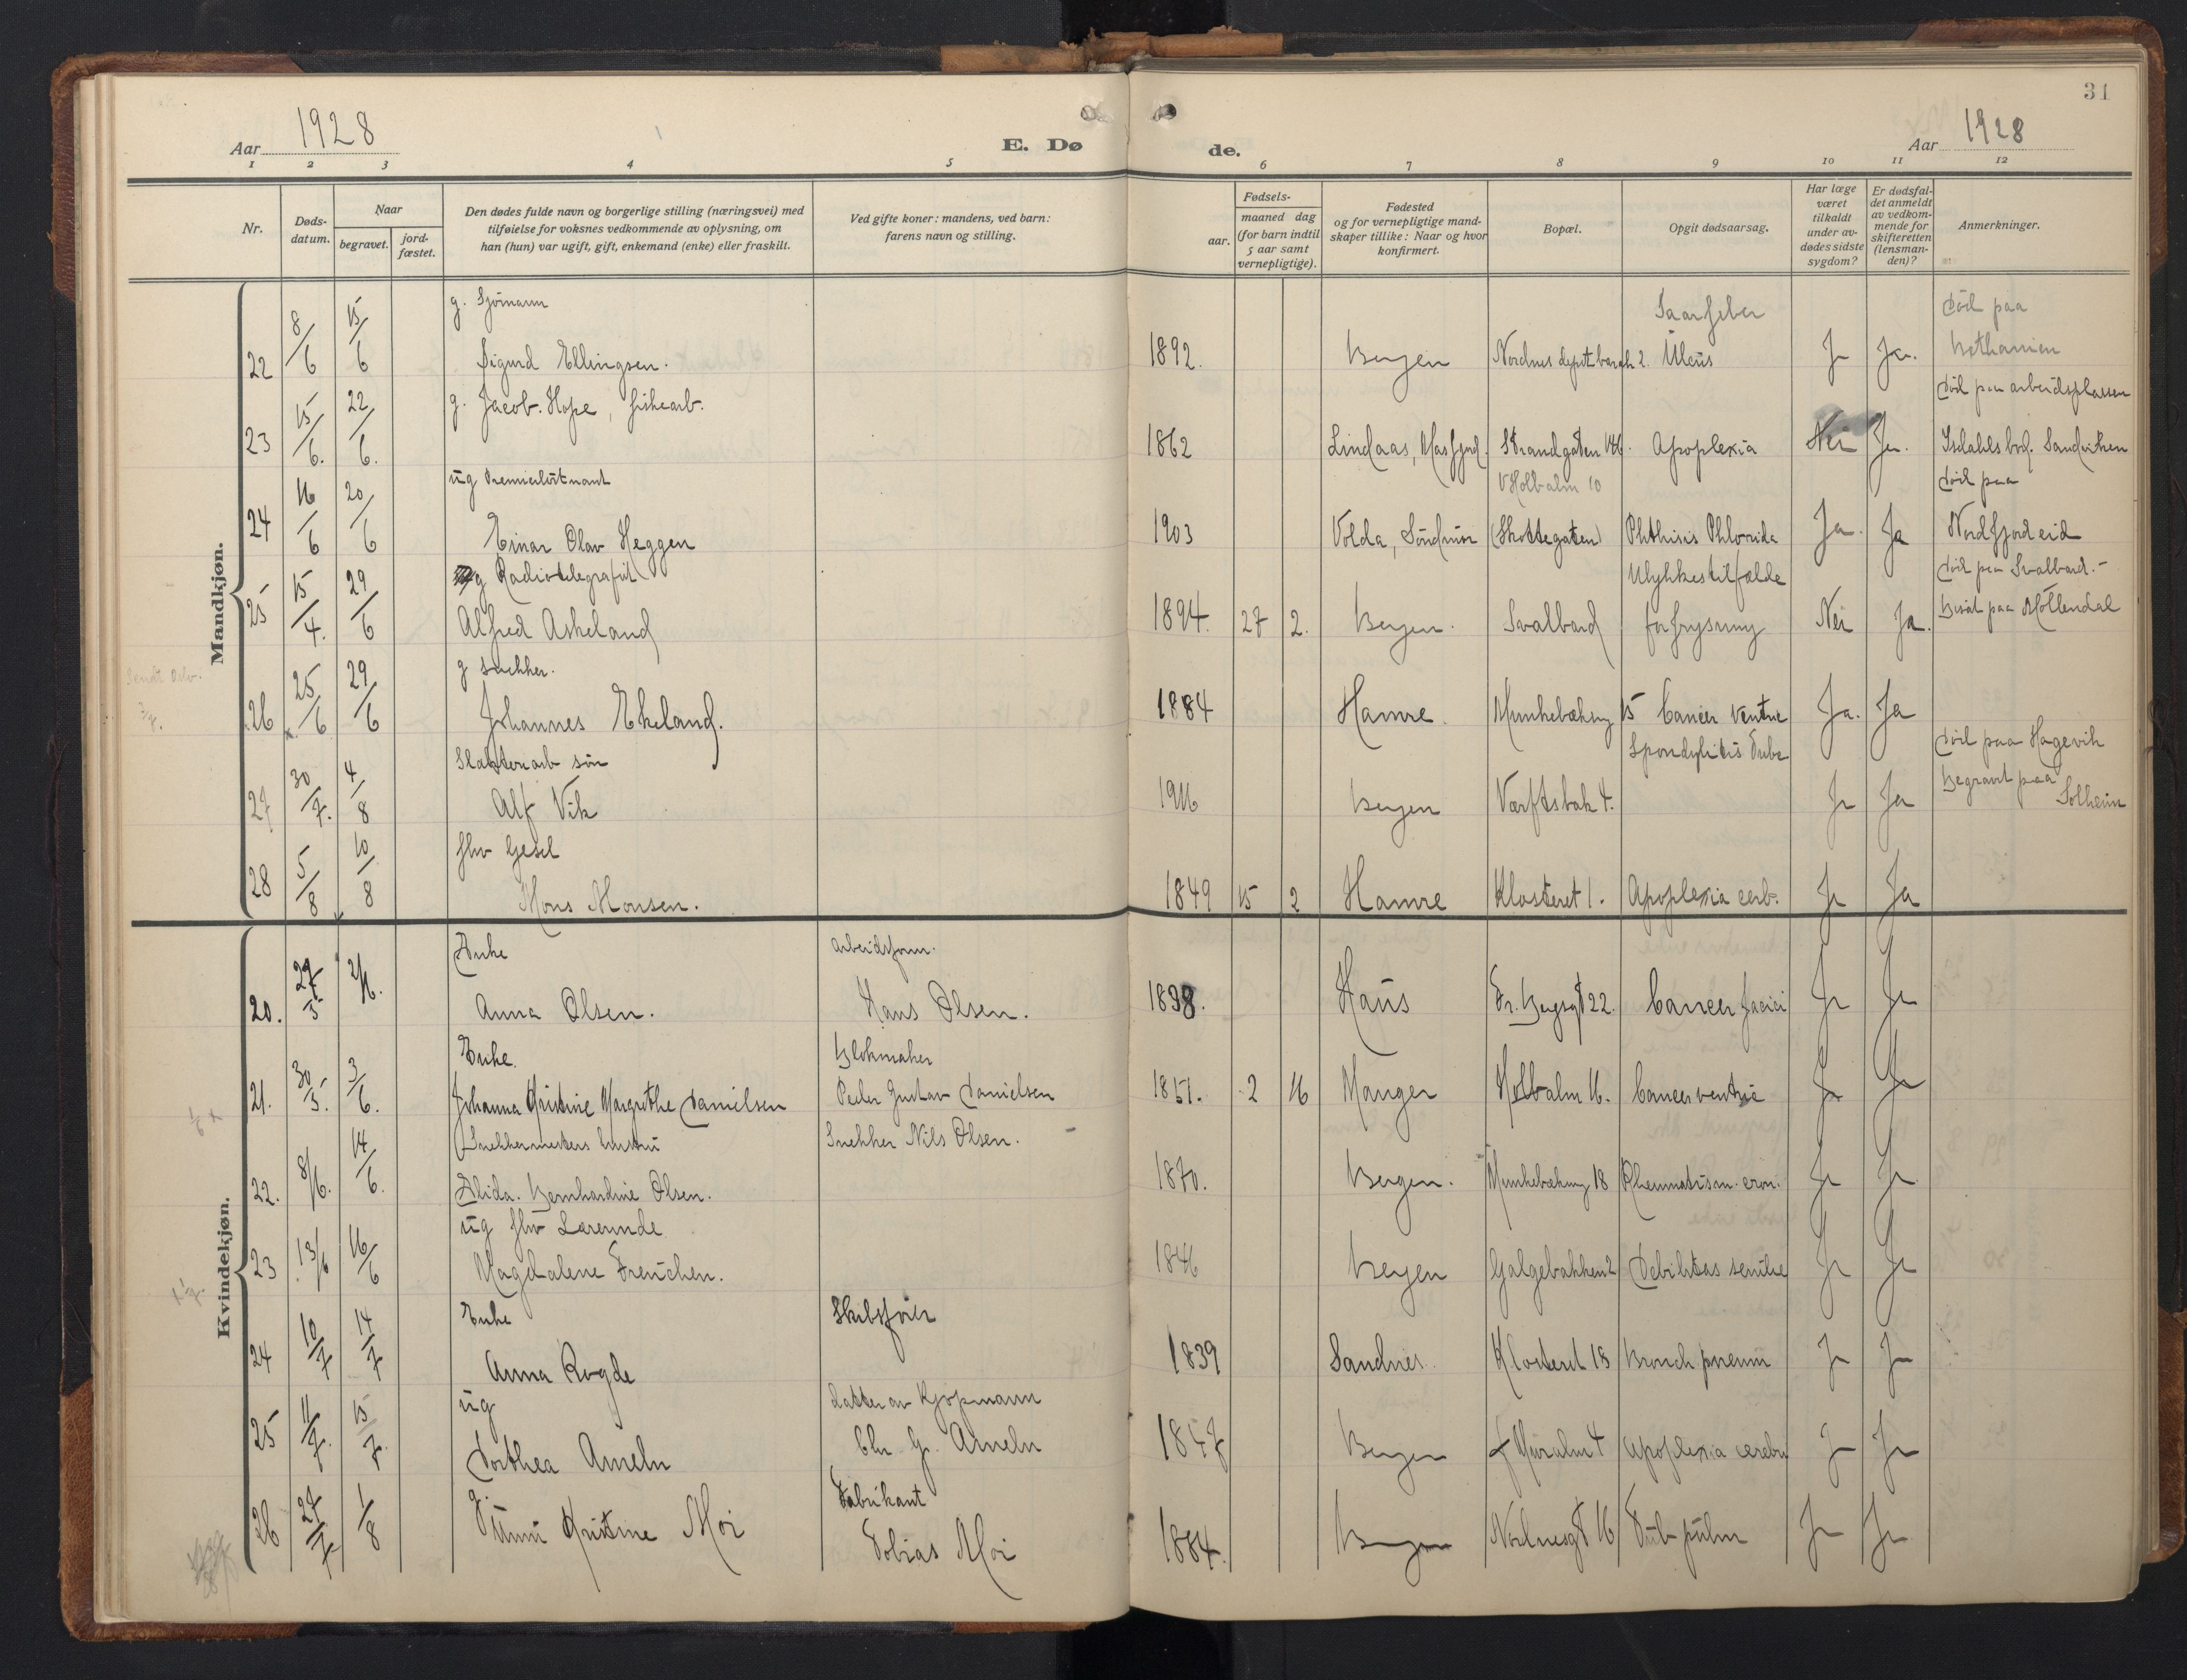 31
Aar 1928
E. Dø de.
Aar 1928
1 2 3 4 5 6 7 8 9 10 11 12
Nr.
Døds-
datum.
Naar
begravet.
jord-
fæstet.
Den dødes fulde navn og borgerlige stilling (næringsvei) med
tilføielse for voksnes vedkommende av oplysning, om
han (hun) var ugift, gift, enkemand (enke) eller fraskilt.
Ved gifte koner: mandens, ved barn:
farens navn og stilling.
aar.
Fødsels-
maaned dag
(for barn indtil
5 aar samt
vernepligtige).
Fødested
og for vernepligtige mand-
skaper tillike: Naar og hvor
konfirmert.
Bopæl.
Opgit dødsaarsag.
Har læge
været
tilkaldt
under av-
dødes sidste
sygdom?
Er dødsfal-
det anmeldt
av vedkom-
mende for
skifteretten
(lensman-
den)?
Anmerkninger.
Mandkjøn.
g. Sjømann Saarfeber død paa
22 8/6 15/6 Sigurd Ellingsen. 1892. Bergen Nordnes depotbarak 2. Ulcus Ja Ja. Bethanien
g. Jacob Hope, fiskearb. død paa arbeidsplassen
23 15/6. 22/6. 1862 Lindaas, Masfjord. Strandgaten 146. Apoplexia Nei Ja. Isdahlsbod. Sandviken
ug Premierløitnant V Holbalm 10 død paa
24 16/6 20/6 Einar Olav Heggen 1903 Volda, Søndmør (Skottegaten) Phthisis Phlorida Ja. Ja Nordfjordeid
g Radiotelegrafist Ulykkestilfælde død paa Svalbard.-
25 15/4. 29/6 Alfred Askeland 1894. 27 2. Bergen. Svalbard forfrysning Nei Ja. bisat paa Møllendal
g snekker.
26 25/6 29/6 Johannes Ekeland. 1884 Hamre. Munkebækeng 15 Cancer ventric Ja. Ja
Slakteriarb søn Spondylitis Tube død paa Hagevik
27 30/7. 4/8 Alf Vik 1916 Bergen Værftsbak 4. Ja Ja begravet paa Solheim
fhv Gesel
28 5/8 10/8 Mons Monsen. 1849 15 2 Hamre Klosteret 1. Apoplexia cerb. Ja Ja
Kvindekjøn.
Enke arbeidsform.
20. 27/5 2/6. Anna Olsen. Hans Olsen. 1838. Haus Fr. Bergsgt 22. Cancer faciei Ja Ja
Enke. Blokmaker
21. 30/5. 3/6. Johanna Kristine Margrethe Danielsen Peder Gustav Danielsen 1851. 2 16 Manger Holbalm 16. Cancer ventric Ja Ja
Snekkermesters hustru Snekker Nils Olsen.
22. 8/6. 14/6. Alida. Bernhardine Olsen. 1870. Bergen. Munkebækeng 18 Rheumatism. cron. Ja Ja
ug fhv Lærerinde
23 13/6 16/6 Magdalene Frenchen. 1846 Bergen Galgebakken 2 Debilitas senilis Ja Ja
Enke Skibsfører
24 10/7 14/7 Anna Rogde 1839 Sandnes. Klosteret 18 Bronch pneum Ja Ja
ug datter av Kjøpmann
25 11/7. 15/7. Dorthea Ameln Chr. G. Ameln 1847 Bergen Muralm 4 Apoplexia cerebri Ja Ja
g. Fabrikant
26 27/7 1/8 Unni Kristine Moi Tobias Moi 1884. Bergen Nordnesgt 16 Tub pulm Ja Ja